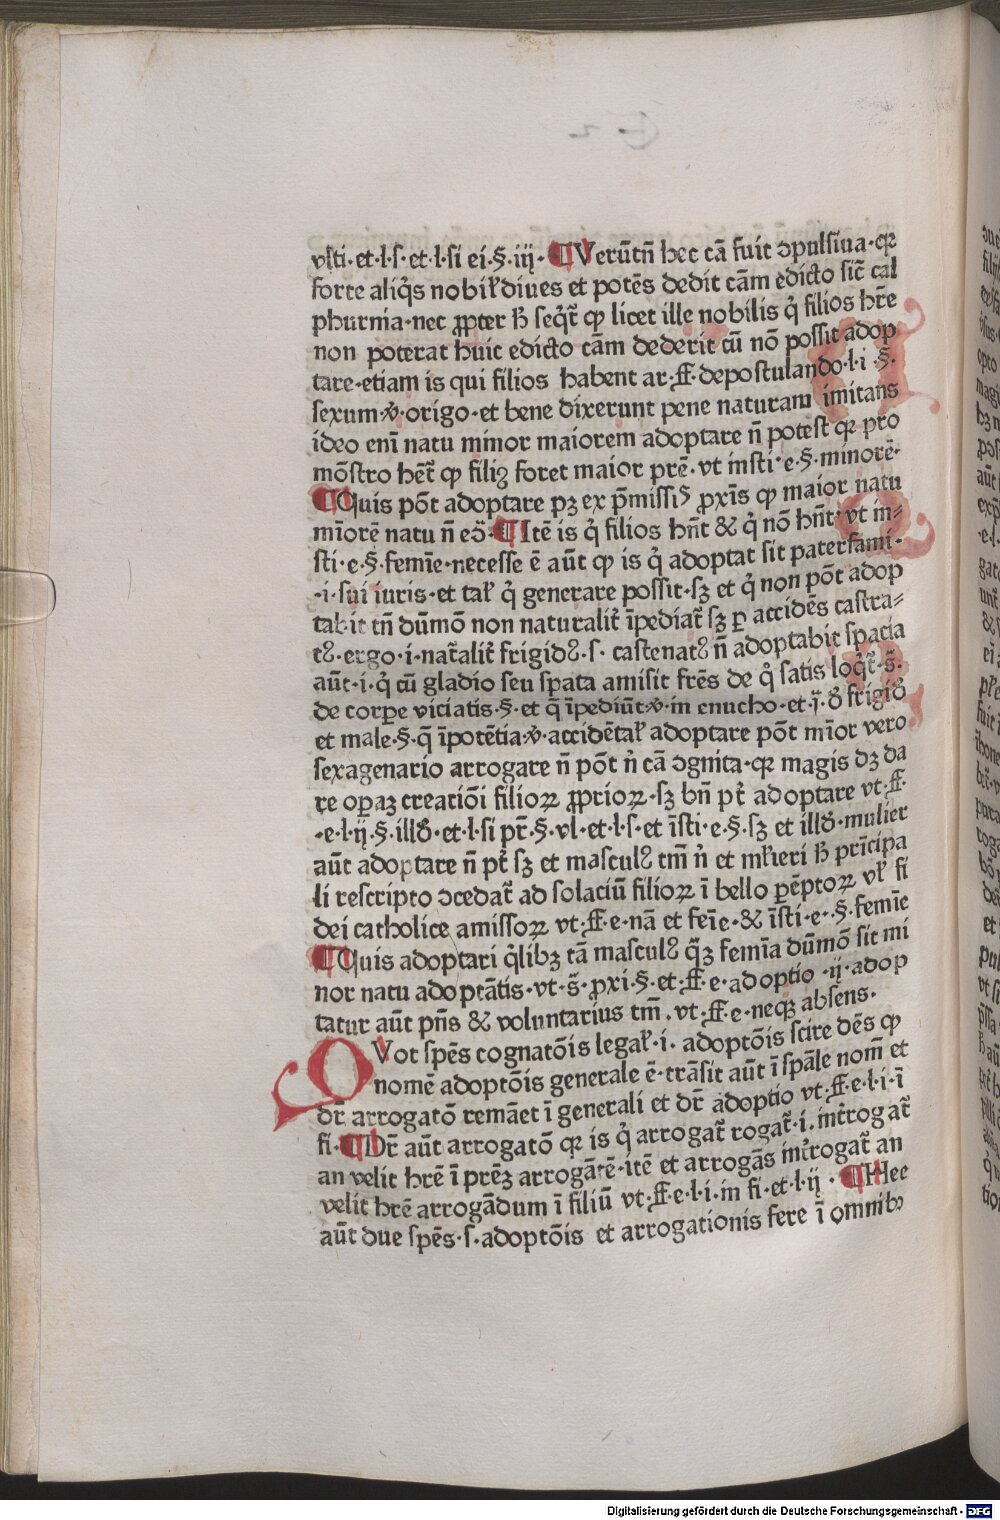 vlti·et·l·s·et·l·si ei·§·iij· ¶ Verūtñ hec cā fuit ɔpulsiua·qꝛ
forte aliq̇s nobiłdiues et potēs dedit cām edicto sic̄ cal
phurnia·nec ꝓpter ħ seq̇t̄ ꝙ licet ille nobilis q̇ filios hr̄e
non poterat huic edicto cām dederit cū nō possit adop
tare·etiam is qui filios habent ar·ff·depostulando·l·i·§·
sexum·ꝟ·origo·et bene dixerunt pene naturam imitans
ideo enī natu minor maiorem adoptare ñ potest qꝛ pro
mōstro hēt̄ ꝙ filiꝰ foret maior prē·vt insti·e·§·minorē·
¶ Quis pōt adoptare pꝫ ex p̄missiꝰ ꝓxīs ꝙ maior natu
mīorē natu ñ eō· ¶ Itē is q̇ filios hñt & q̇ nō hñt·vt in-
sti·e·§·femīe·necesse ē aūt ꝙ is q̇ adoptat sit paterfami·
·i·sui iuris·et tał q̇ generare possit·sꝫ et q̇ non pōt adop
tabit tñ dūmō non naturalit̄ īpediat̄ sꝫ ꝑ accidēs castra-
tꝰ·ergo·i·nat̄alit̄ frigidꝰ·s· castenatꝰ ñ adoptabit spacia
aūt·i·q̇ cū gladio seu spata amisit frēs de q̇ satis loq̇t̄·s̄·
de corꝑe viciatis·§·et q̄ īpediūt·ꝟ·in enucho·et·j̄·ð frigið
et male·§·q̄ īpotētia·ꝟ·accidētał adoptare pōt mīor vero
sexagenario arrogare ñ pōt ṅ cā ɔgnita·qꝛ magis dꝫ da
re opaꝫ creatiōi filioꝝ ꝓprioꝝ·sꝫ bñ pt̄ adoptare vt·ff·
·e·l·ij·§·illð·et·l·si pr̄·§·vl·et·l·s·et īsti·e·§·sꝫ et illð·mulier
aūt adoptare ñ pt̄ sꝫ et masculꝰ tm̄ ṅ et młieri ħ prīcipa
li rescripto ɔcedat̄ ad solaciū filioꝝ ī bello ꝑēptoꝝ vł fi
dei catholice amissoꝝ vt·ff·e·nā et feīe·& īsti·e·§·femīe
¶ Quis adoptari q̇libꝫ tā masculꝰ q̄ꝫ femīa dūmō sit mi
nor natu adoptātis·vt·s̄·ꝓxi·§·et·ff·e·adoptio·ij·adop
tatur aūt pñs & voluntarius tm̄·vt·ff·e·neqꝫ absens·
QVot spēs cognatōis legał·i·adoptōis scire dēs ꝙ
nomē adoptōis generale ē·trāsit aūt ī spāle nom̄ et
dr̄ arrogatō remāet ī generali et dr̄ adoptio vt·ff·e·l·i·ī
fi· ¶ Dr̄ aūt arrogatō qꝛ is q̇ arrogat̄ rogat̄·i·int̄rogat̄
an velit hrē ī prēꝫ arrogātē·itē et arrogās int̄rogat̄ an
velit hrē arrogādum ī filiū vt·ff·e·l·i·in fi·et·l·ij· ¶ Hee
aūt due spēs·s·adoptōis et arrogationis fere ī omnibꝰ
Digitalisierung gefördert durch die Deutsche Forschungsgemeinschaft - DFG